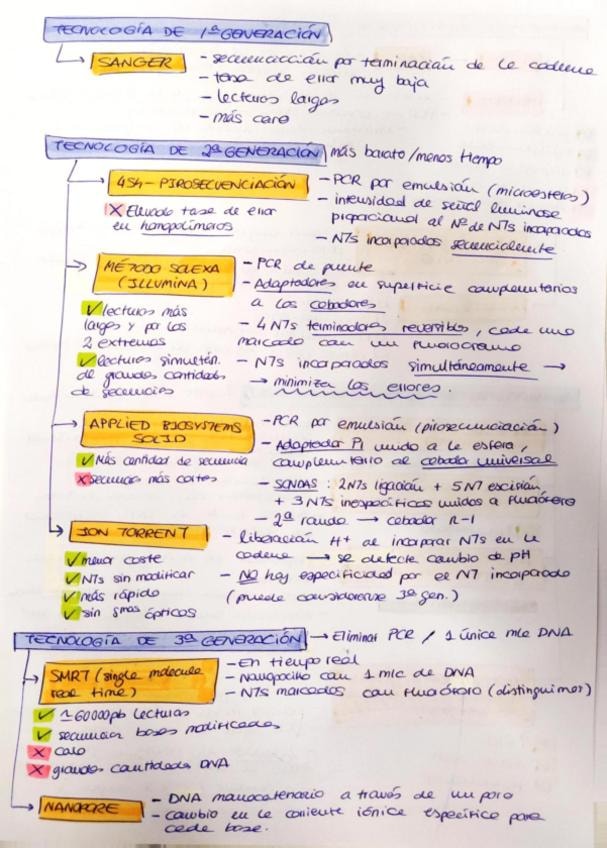 TECNOLOGÍA DE 1ª GENERACIÓN
SANGER
- secuenciación por terminación de la cadena
- tasa de error muy baja
- lecturas largas
- más caro
TECNOLOGÍA DE 2ª GENERACIÓN más barato/menos tiempo
454-PIROSECUENCIACIÓN
X Elevada tasa de error
en homopolímeros
- PCR por emulsión (microesferas)
- intensidad de señal luminosa
proporcional al Nº de NTs incorporados
- NTs incorporados secuencialmente
MÉTODO SOLEXA
(ILLUMINA)
✓ lecturas más
largas y por los
2 extremos
✓ lecturas simultán.
de grandes cantidades
de secuencias
- PCR de puente
- Adaptadores en superficie complementarios
a los cebadores
- 4 NTs terminadores reversibles, cada uno
marcado con un fluorocromo
- NTs incorporados simultáneamente →
→ minimiza los errores.
APPLIED BIOSYSTEMS
SOLID
✓ Más cantidad de secuencia
X secuencias más cortas
- PCR por emulsión (pirosecuenciación)
- Adaptador P1 unido a la esfera,
complementario al cebador universal
- SONDAS: 2NTs ligación + 5NT escisión
+ 3 NTs inespecíficos unidos a fluoróforo
- 2ª ronda → cebador n-1
ION TORRENT
✓ menor coste
✓ NTs sin modificar
✓ más rápido
✓ sin smas ópticos
- liberación H+ al incorporar NTs en la
cadena → se detecta cambio de pH
- NO hay especificidad por el NT incorporado
(puede considerarse 3ª gen.)
TECNOLOGÍA DE 3ª GENERACIÓN → Eliminar PCR / 1 única mlc DNA
SMRT (single molecule
real time)
✓ ~60000pb lecturas
✓ secuenciar bases modificadas
X caro
X grandes cantidades DNA
- En tiempo real
- Nanopocillo con 1 mlc de DNA
- NTs marcados con fluoróforo (distinguimos)
NANOPORE
- DNA monocatenario a través de un poro
- cambio en la corriente iónica específica para
cada base.